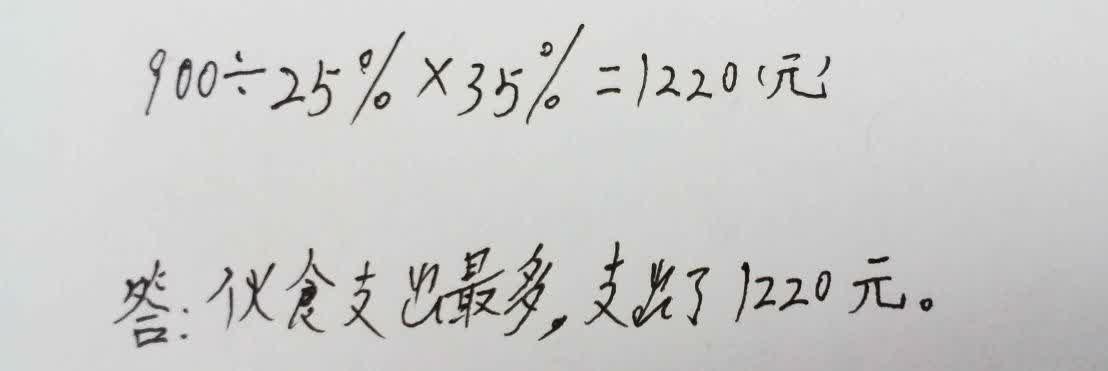 900÷25%×35%=1220(元)
答:伙食支出最多,支出了1220元。